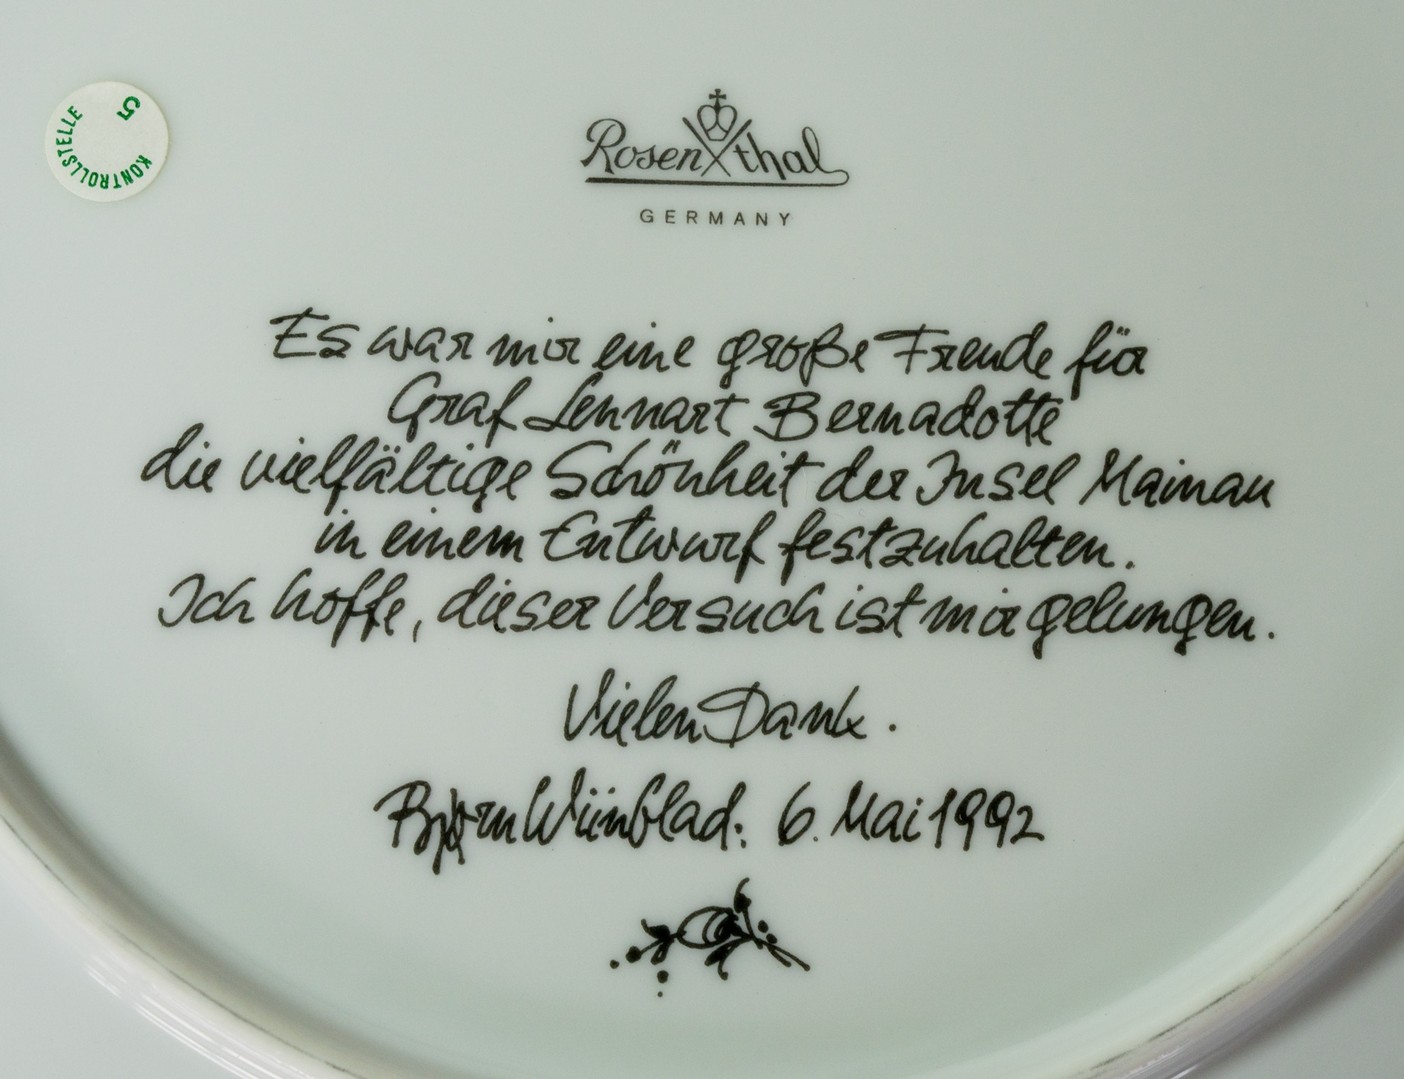 KONTROLLSTELLE 5
Rosenthal
GERMANY
Es war mir eine große Freude für
Graf Lennart Bernadotte
die vielfältige Schönheit der Insel Mainau
in einem Entwurf festzuhalten.
Ich hoffe, dieser Versuch ist mir gelungen.
Vielen Dank.
Bjørn Wiinblad. 6. Mai 1992